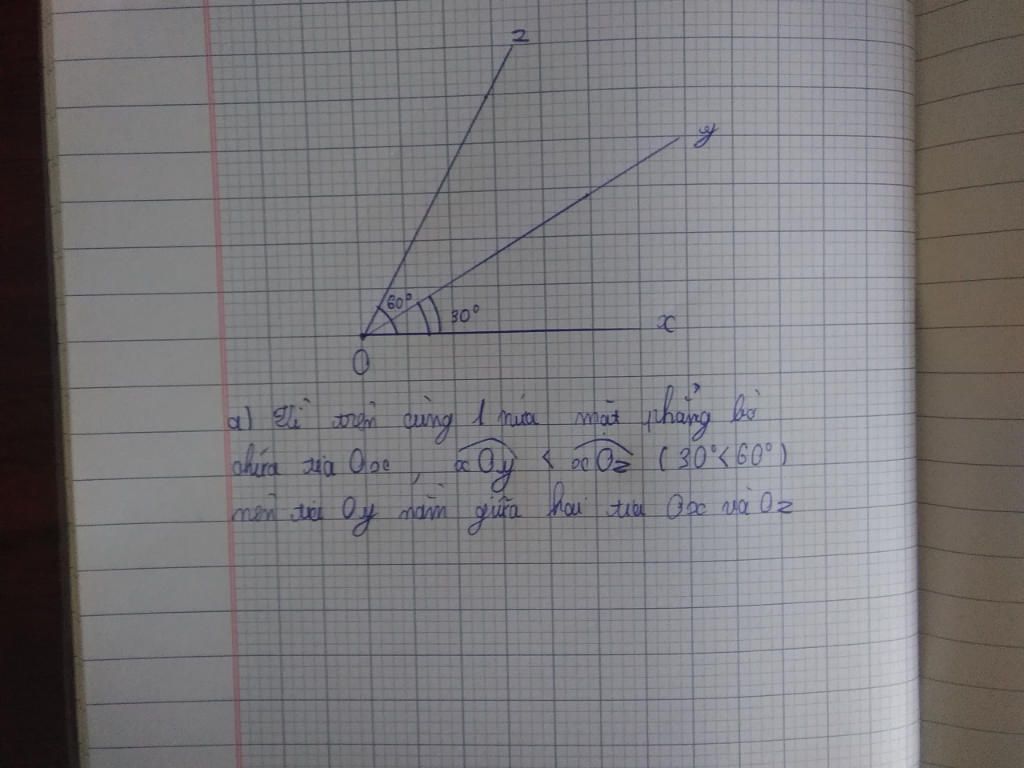 z
y
60°
30°
x
O
a) Vì trên cùng 1 nửa mặt phẳng bờ
chứa tia Ox, xOy < xOz (30°<60°)
nên tia Oy nằm giữa hai tia Ox và Oz